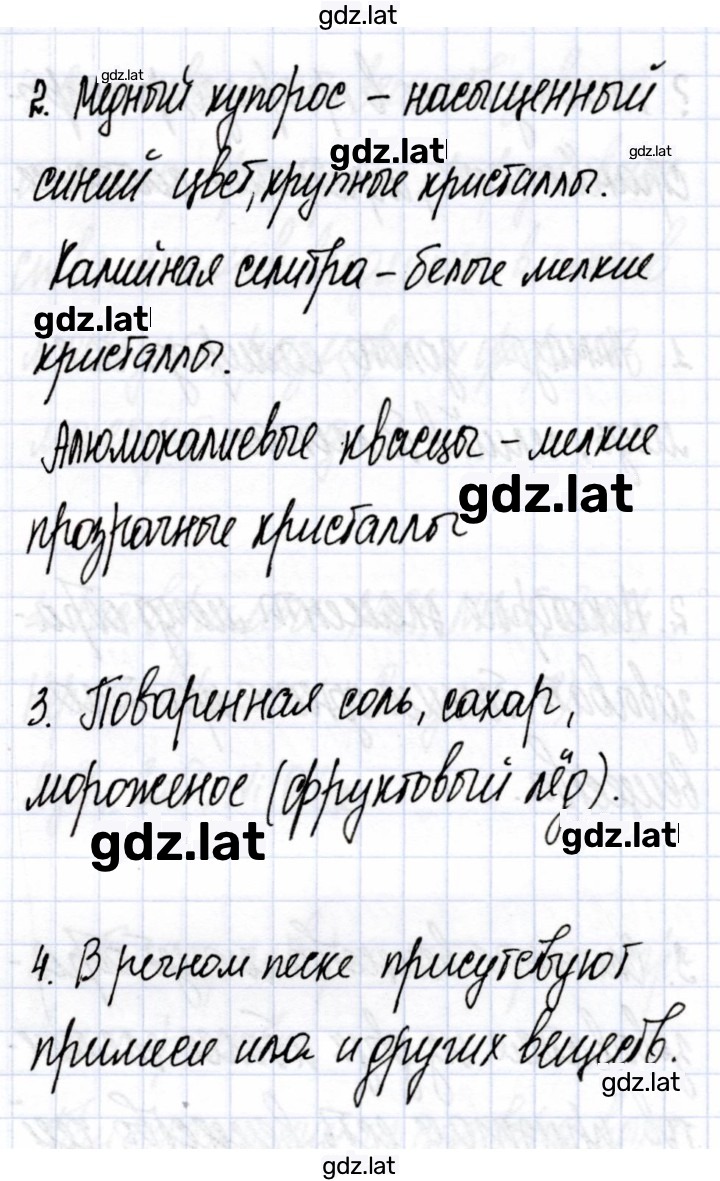 gdz.lat
gdz.lat
2. Медный купорос - насыщенный
gdz.lat
gdz.lat
синий цвет, крупные кристаллы.
Калийная селитра - белые мелкие
gdz.lat
кристаллы.
Алюмокалиевые квасцы - мелкие
gdz.lat
прозрачные кристаллы
3. Поваренная соль, сахар,
мороженое (фруктовый лёд).
gdz.lat
gdz.lat
4. В речном песке присутсвуют
примеси ила и других веществ.
gdz.lat
gdz.lat